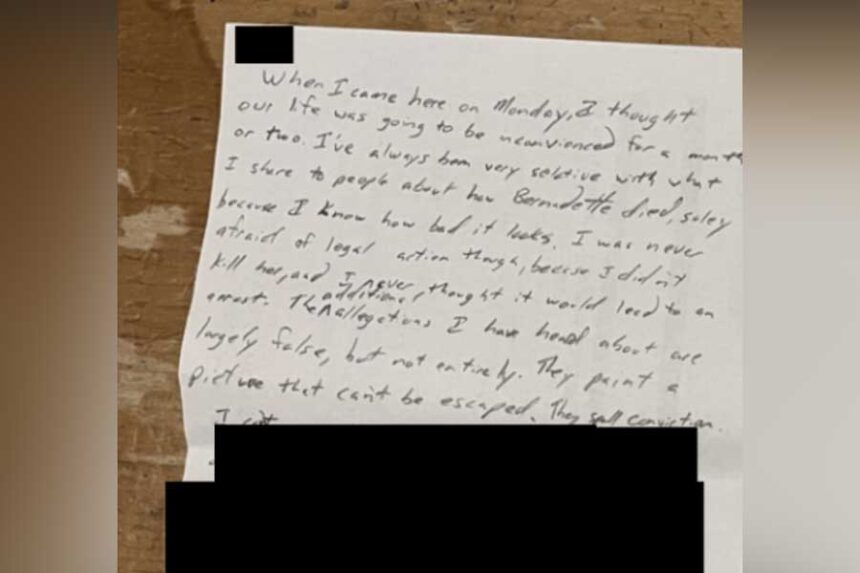 When I came here on Monday, I thought
our life was going to be inconvienced for a month
or two. I've always been very selative with what
I share to people about how Bernadette died, soley
because I know how bad it looks. I was never
afraid of legal action though, because I didn't
kill her, and I never thought it would lead to an
arrest. The additional allegations I have heard about are
largely false, but not entirely. They paint a
picture that can't be escaped. They spell conviction.
I can't